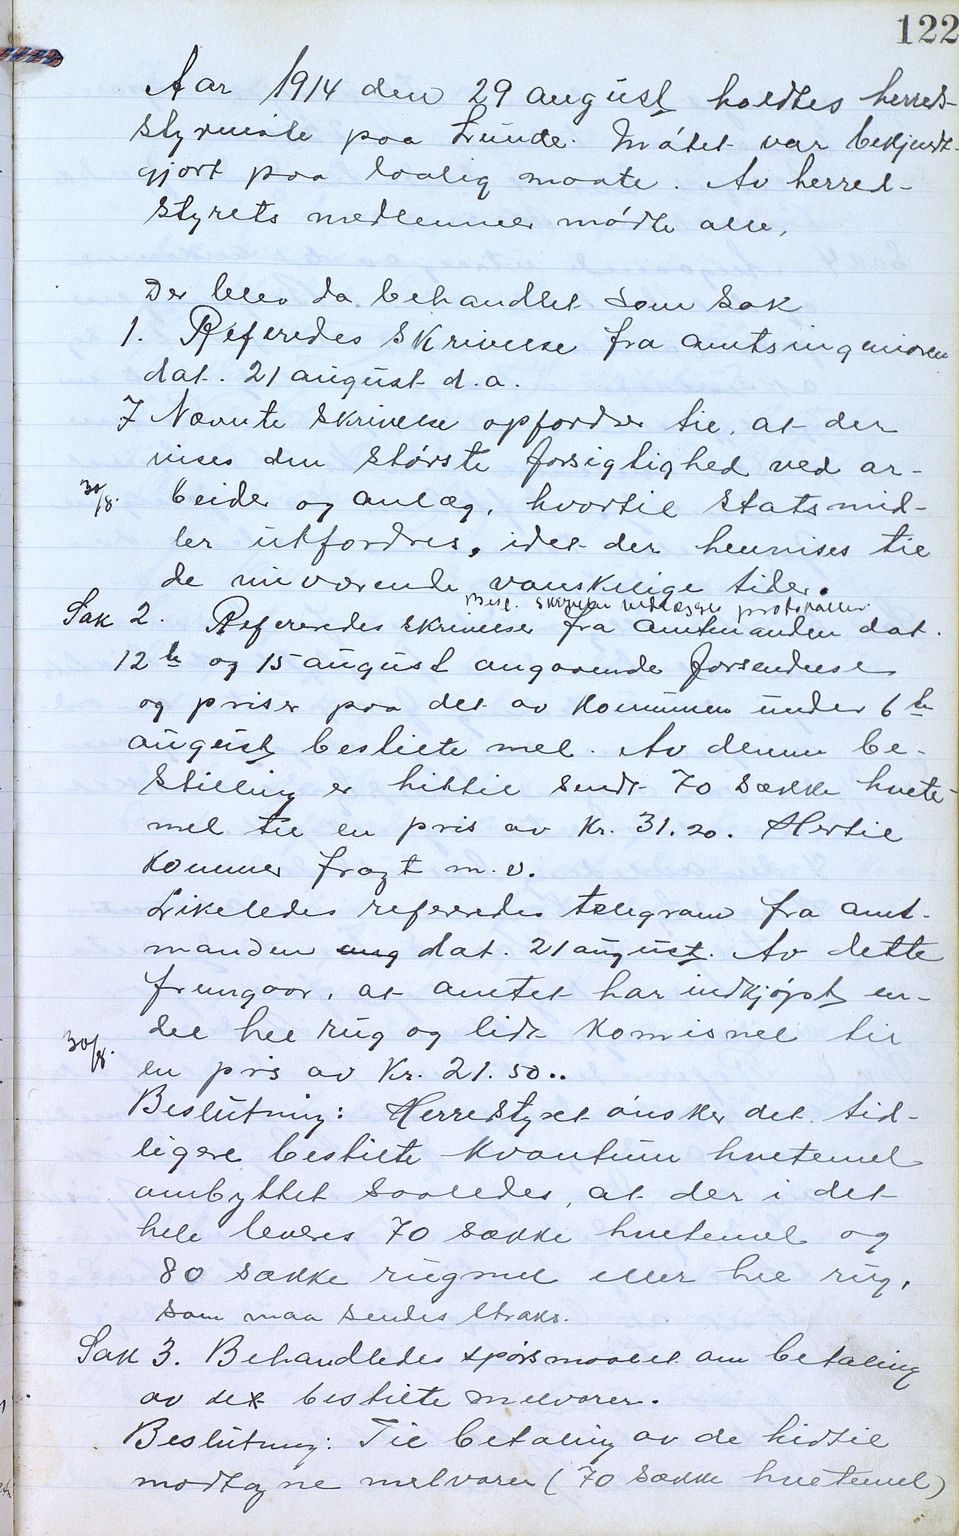 122
Aar 1914 den 29 august holdtes herreds-
styrmøte paa Lunde. Møtet var bekjendt-
gjort paa lovlig maate. Av herred-
styrets medlemmer mødte alle.
Der blev da behandlet som sak
1. Refereredes skrivelse fra amtsingeniøren
dat. 21 august d.a.
I Nævnte skrivelse opfordrer til, at der
vises den største forsigtighed ved ar-
30/8. beider og anlæg, hvortil statsmid-
ler utfordres, idet der henvises til
de nuværende vanskelige tider.
skrivelse vedlægges protokollen.
Sak 2. Refereredes skrivelse fra amtmanden dat.
12te og 15 august angaaende forsendelse
og priser paa det av kommunen under 6te
august bestilte mel. Av denne be-
stilling er hittil sendt 70 sække hvete-
mel til en pris av kr. 31.20. Hertil
kommer fragt m.v.
Likeledes refereredes telegram fra amt-
manden ang dat. 21 august. Av dette
fremgaar, at amtet har indkjøpt en-
del hel rug og lidt komismel til
30/8.
en pris av kr. 21.50..
Beslutning: Herredstyret ønsker det tid-
ligere bestilte kvantum hvetemel
ombyttet saaledes, at der i det
hele leveres 70 sække hvetemel og
80 sække rugmel eller hel rug,
som maa sendes straks.
Sak 3. Behandledes spørsmaalet om betaling
av de bestilte melvarer.
Beslutning: Til betaling av de hidtil
modtagne melvarer (70 sække hvetemel)